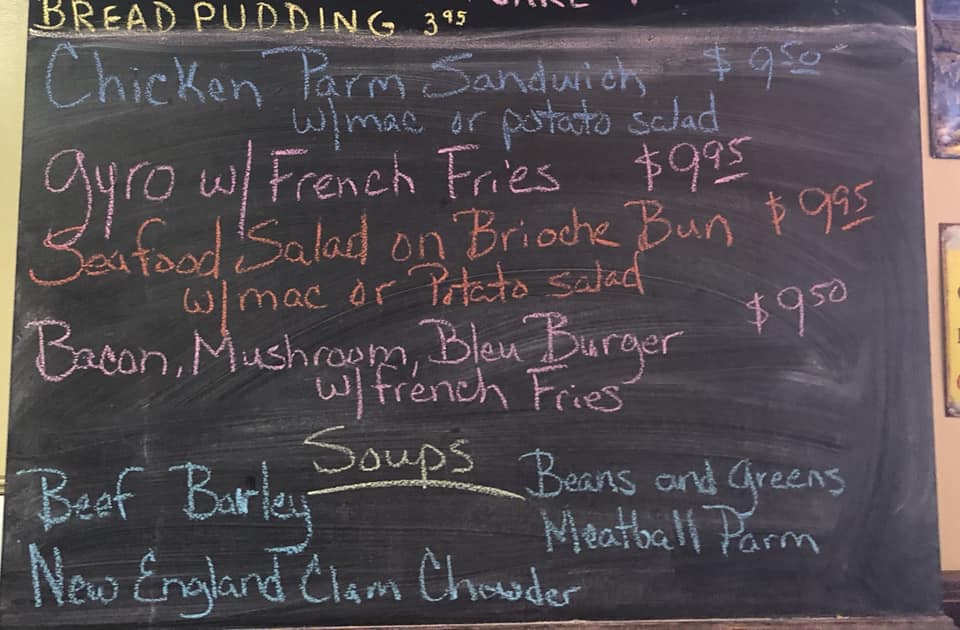 BREAD PUDDING 3.95
Chicken Parm Sandwich $9.50
w/mac or potato salad
Gyro w/ French Fries $9.95
Seafood Salad on Brioche Bun $9.95
w/mac or Potato salad
Bacon, Mushroom, Bleu Burger $9.50
w/ french Fries
Soups
Beef Barley
Beans and Greens
Meatball Parm
New England Clam Chowder